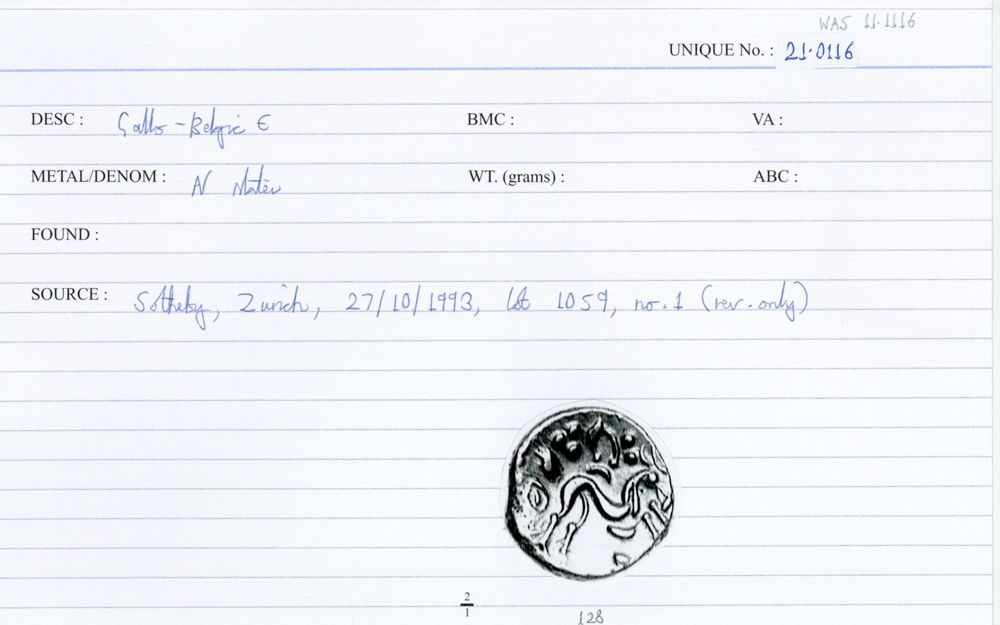 WAS 11.1116
UNIQUE No. : 21.0116
DESC : Gallo-Belgic E BMC : VA :
METAL/DENOM : N Stater WT. (grams) : ABC :
FOUND :
SOURCE : Sotheby, Zurich, 27/10/1993, lot 1059, no.1 (rev. only)
2
1
128